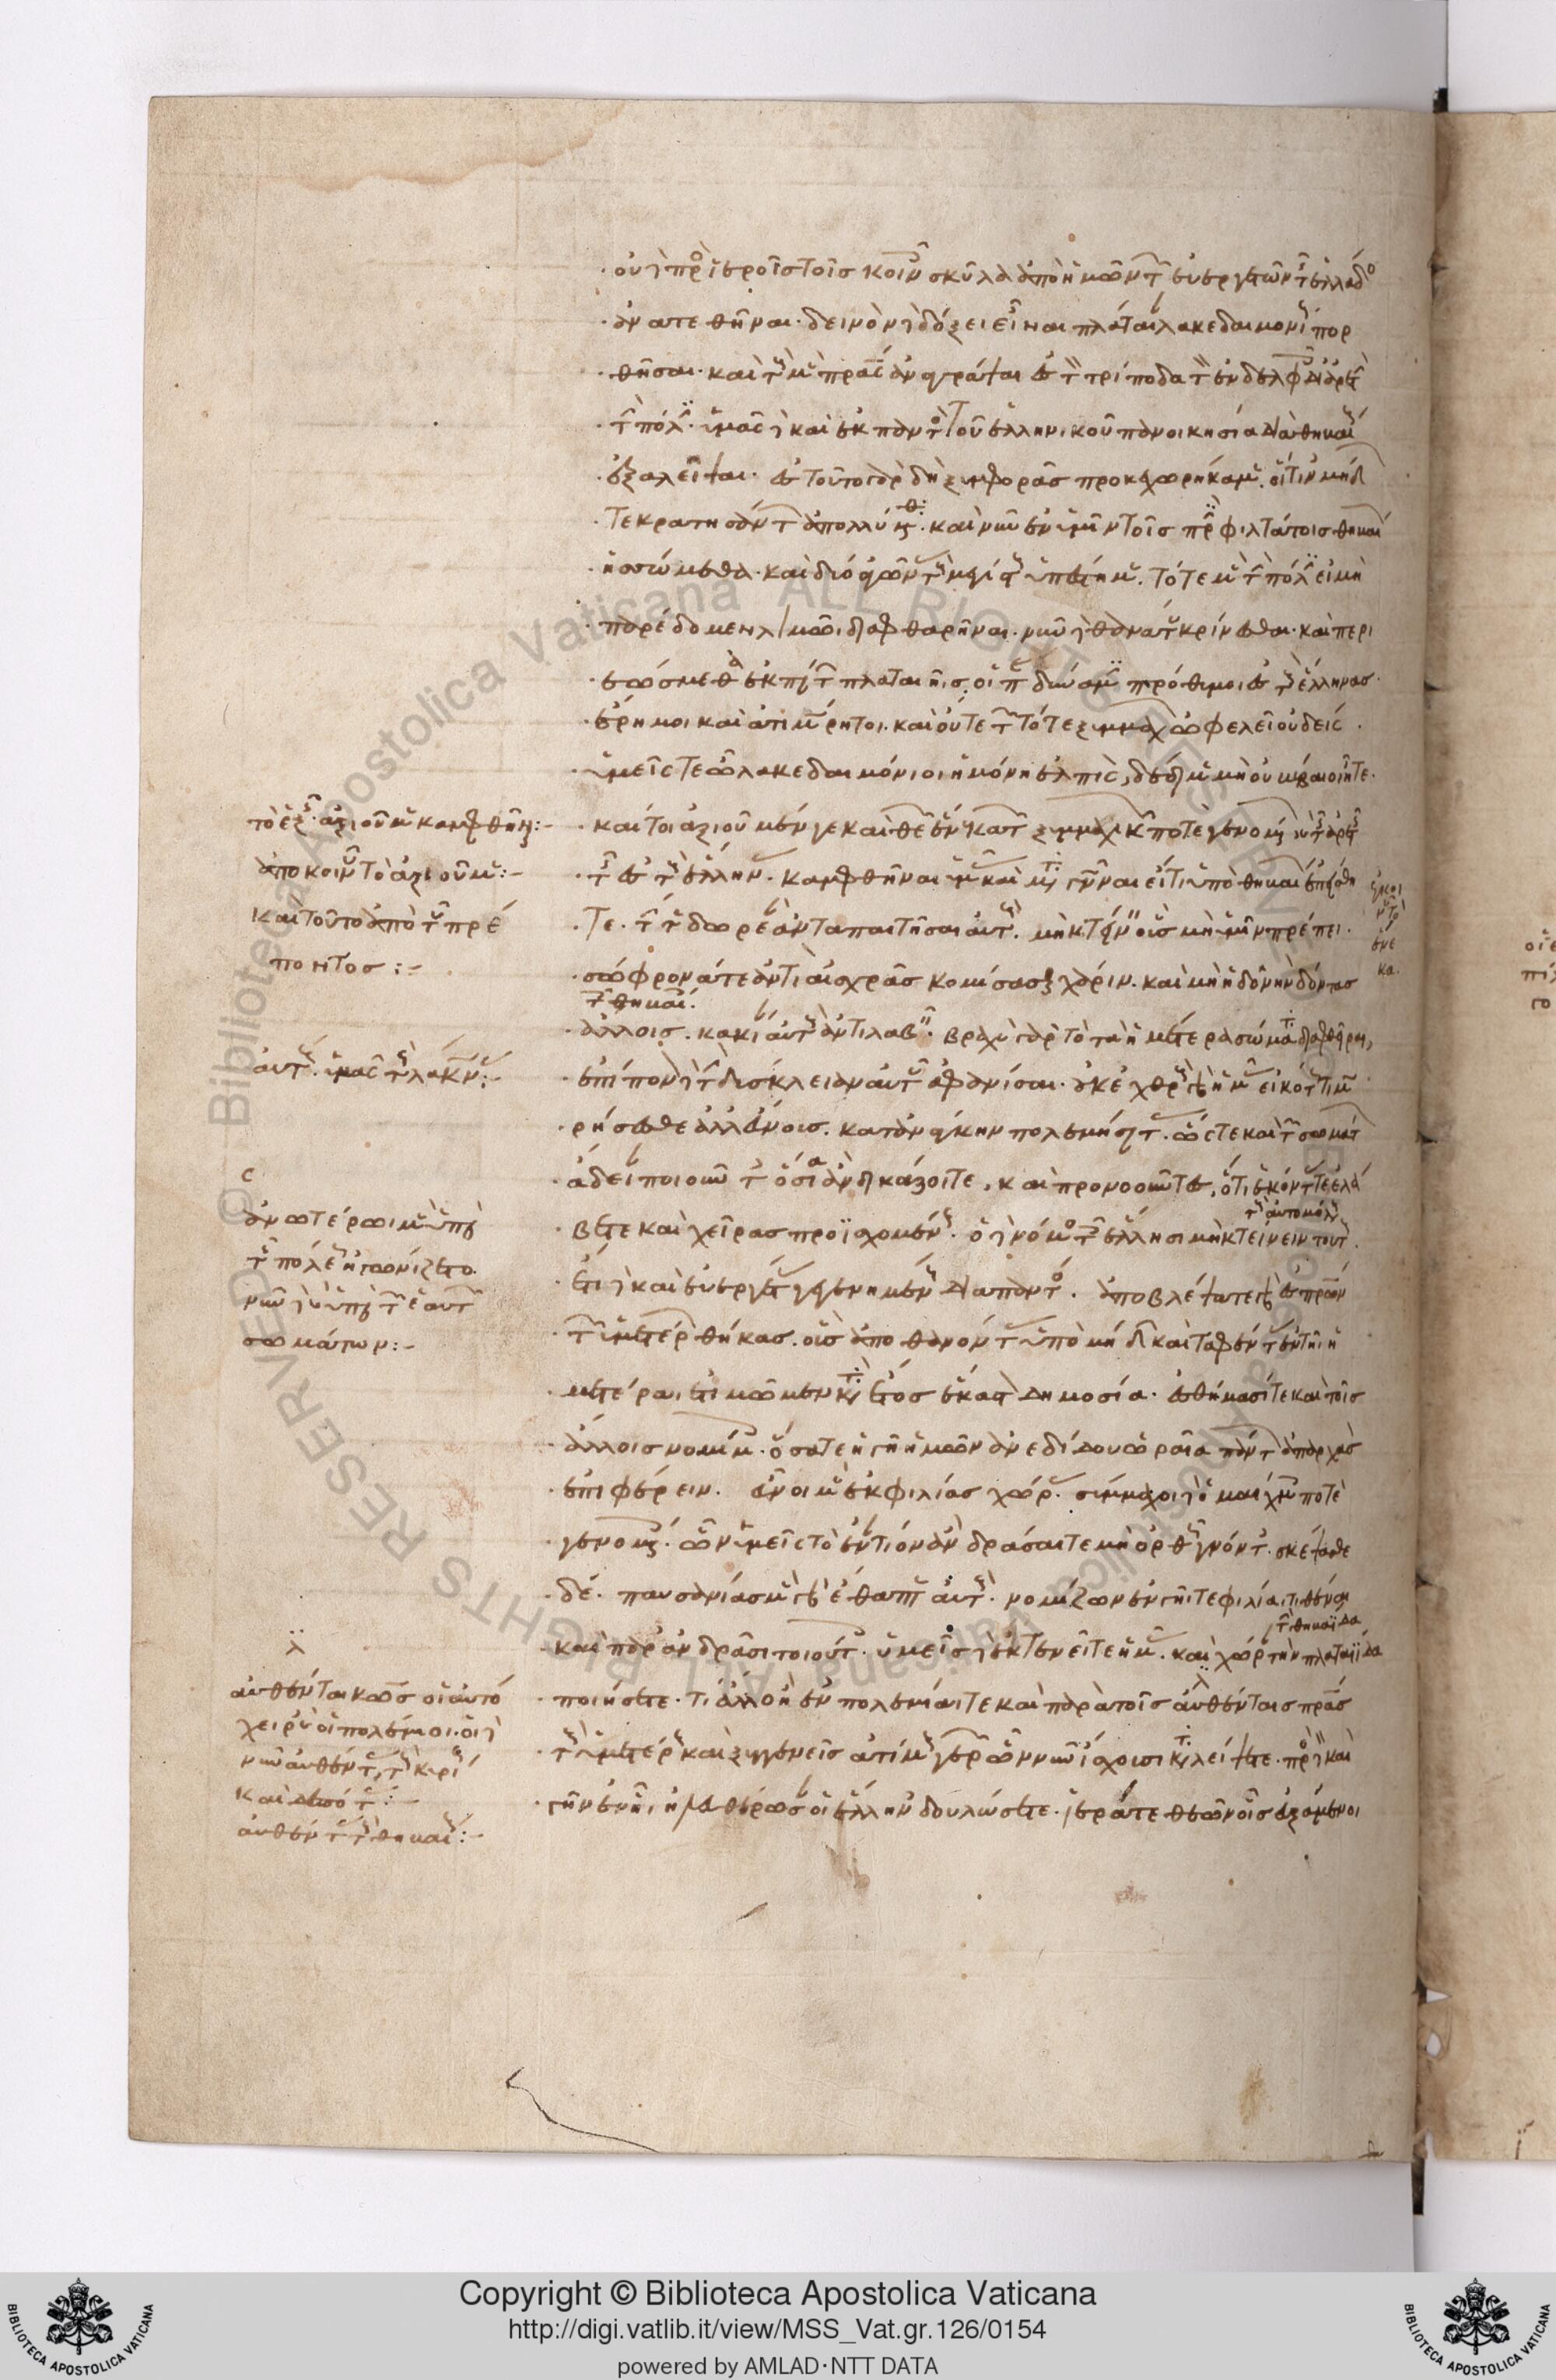 οὐδὲ πρὸς ἱεροῖς τοῖς κοινοῖς σκῦλα ἀπὸ ἡμῶν τῶν εὐεργετῶν τῆς ἑλλάδος
ἀνατεθῆναι. δεινὸν δὲ δόξει εἶναι πλάταιαν λακεδαιμονίους πορ
θῆσαι. καὶ τοὺς μὲν πατέρας ἀναγράψαι ἐς τὸν τρίποδα τὸν ἐν δελφοῖς δι' ἀρετὴν
τὴν πόλιν. ὑμᾶς δὲ καὶ ἐκ παντὸς τοῦ ἑλληνικοῦ πανοικησία διὰ θηβαίους
ἐξαλεῖψαι. ἐς τοῦτο γὰρ δὴ ξυμφορᾶς προκεχωρήκαμεν. οἵτινες μήδων
τε κρατησάντων ἀπολλύμεθα. καὶ νῦν ἐν ὑμῖν τοῖς πρὶν φιλτάτοις θηβαίων
ἡσσώμεθα. καὶ δύο ἀγῶνας τοὺς μεγίστους ὑπέστημεν. τότε μὲν τὴν πόλιν εἰ μὴ
παρέδομεν λιμῶι διαφθαρῆναι. νῦν δὲ θανάτου κρίνεσθαι. καὶ περι
εώσμεθα ἐκ πάντων πλαταιῆς. οἱ παρὰ δύναμιν πρόθυμοι ἐς τοὺς ἕλληνας.
ἐρῆμοι καὶ ἀτιμώρητοι. καὶ οὔτε τῶν τότε ξυμμάχων ὠφελεῖ οὐδείς.
ὑμεῖς τε ὦ λακεδαιμόνιοι ἡ μόνη ἐλπὶς, δέδιμεν μὴ οὐ βέβαιοι ἦτε.
τὸ ἑξῆς. ἀξιοῦμεν καμφθῆναι:-
καίτοι ἀξιοῦμέν γε καὶ θεῶν ἕνεκα τῶν ξυμμαχικῶν ποτὲ γενομένων καὶ τῆς ἀρετῆς
ἀπὸ κοινοῦ τὸ ἀξιοῦμεν:-
τῆς ἐς τοὺς ἕλληνας. καμφθῆναι ὑμᾶς καὶ μεταγνῶναι εἴ τι ὑπὸ θηβαίων ἐπείσθη
καὶ τοῦτο ἀπὸ τοῦ πρέ
τε. τήν τε δωρεὰν ἀνταπαιτῆσαι αὐτοὺς. μὴ κτείνειν οὓς μὴ ὑμῖν πρέπει.
ποντος:-
σώφρονά τε ἀντὶ αἰσχρᾶς κομίσασθαι χάριν. καὶ μὴ ἡδονὴν δόντας
τοῖς θηβαίοις.
ἄλλοις. κακίαν αὐτοὺς ἀντιλαβεῖν. βραχὺ γὰρ τὸ τὰ ἡμέτερα σώματα διαφθεῖραι,
αὐτοὺς. ὑμᾶς τοὺς λάκωνας:-
ἐπίπονον δὲ τὴν δύσκλειαν αὐτοῦ ἀφανίσαι. οὐκ ἐχθροὺς γὰρ ἡμᾶς εἰκότως τιμω
ρήσεσθε ἀλλ' εὔνους. κατ' ἀνάγκην πολεμήσαντας. ὥστε καὶ τῶν σωμάτων
ἄδειαν ποιοῦντες ὅσια ἂν δικάζοιτε, καὶ προνοοῦντες, ὅτι ἑκόντας τε ἐλά
ἀνωτέρωι μὲν ὑπὲρ
τοὺς αὐτομόλους
βετε καὶ χεῖρας προϊσχομένους. ὁ δὲ νόμος τοῖς ἕλλησι μὴ κτείνειν τούτους.
τῆς πόλεως ἠγωνίζετο.
ἔτι δὲ καὶ εὐεργέτας γεγενημένους διὰ παντός. ἀποβλέψατε γὰρ ἐς πατέρων
νῦν δὲ ὑπὲρ τῶν ἑαυτῶν
τῶν ὑμετέρων θήκας. οὓς ἀποθανόντας ὑπὸ μήδων καὶ ταφέντας ἐν τῆι ἡ
σωμάτων:-
μετέραι ἐτιμῶμεν κατὰ ἔτος ἕκαστον δημοσία. ἐσθήμασί τε καὶ τοῖς
ἄλλοις νομίμοις. ὅσα τε ἡ γῆ ἡμῶν ἀνεδίδου ὡραῖα πάντων ἀπαρχὰς
ἐπιφέρειν. εὖνοι μὲν ἐκ φιλίας χώρας. σύμμαχοι δὲ ὁμαίχμοις ποτὲ
γενομένοις. ὧν ὑμεῖς τὸ ἐναντίον ἂν δράσαιτε μὴ ὀρθῶς γνόντες. σκέψασθε
δέ. παυσανίας μὲν γὰρ ἔθαπτεν αὐτοὺς. νομίζων ἐν γῆι τε φιλίαι τιθέναι
τὴν θηβαΐδα
καὶ παρ' ἀνδράσι τοιούτοις. ὑμεῖς δὲ εἰ κτενεῖτε ἡμᾶς. καὶ χώραν τὴν πλαταιΐδα
αὐθένται κυρίως οἱ αὐτό
ποιήσετε. τί ἄλλο ἢ ἐν πολεμίαι τε καὶ παρὰ τοῖς αὐθένταις πατέρας
χειρες ἢ οἱ πολέμιοι. οἱ δὲ
τοὺς ὑμετέρους καὶ ξυγγενεῖς ἀτίμους γερῶν ὧν νῦν ἴσχουσι καταλείψετε. πρὸς δὲ καὶ
νῦν αὐθέντας, τοὺς κυρίους
γῆν ἐν ἧι ἠλευθερώθησαν οἱ ἕλληνες δουλώσετε. ἱερά τε θεῶν οἷς εὐξάμενοι
καὶ δεσπότας:-
αὐθέντας τοὺς θηβαίους:-
© Biblioteca Apostolica Vaticana ALL RIGHTS RESERVED
Copyright © Biblioteca Apostolica Vaticana
http://digi.vatlib.it/view/MSS_Vat.gr.126/0154
powered by AMLAD·NTT DATA
BIBLIOTECA APOSTOLICA VATICANA
BIBLIOTECA APOSTOLICA VATICANA